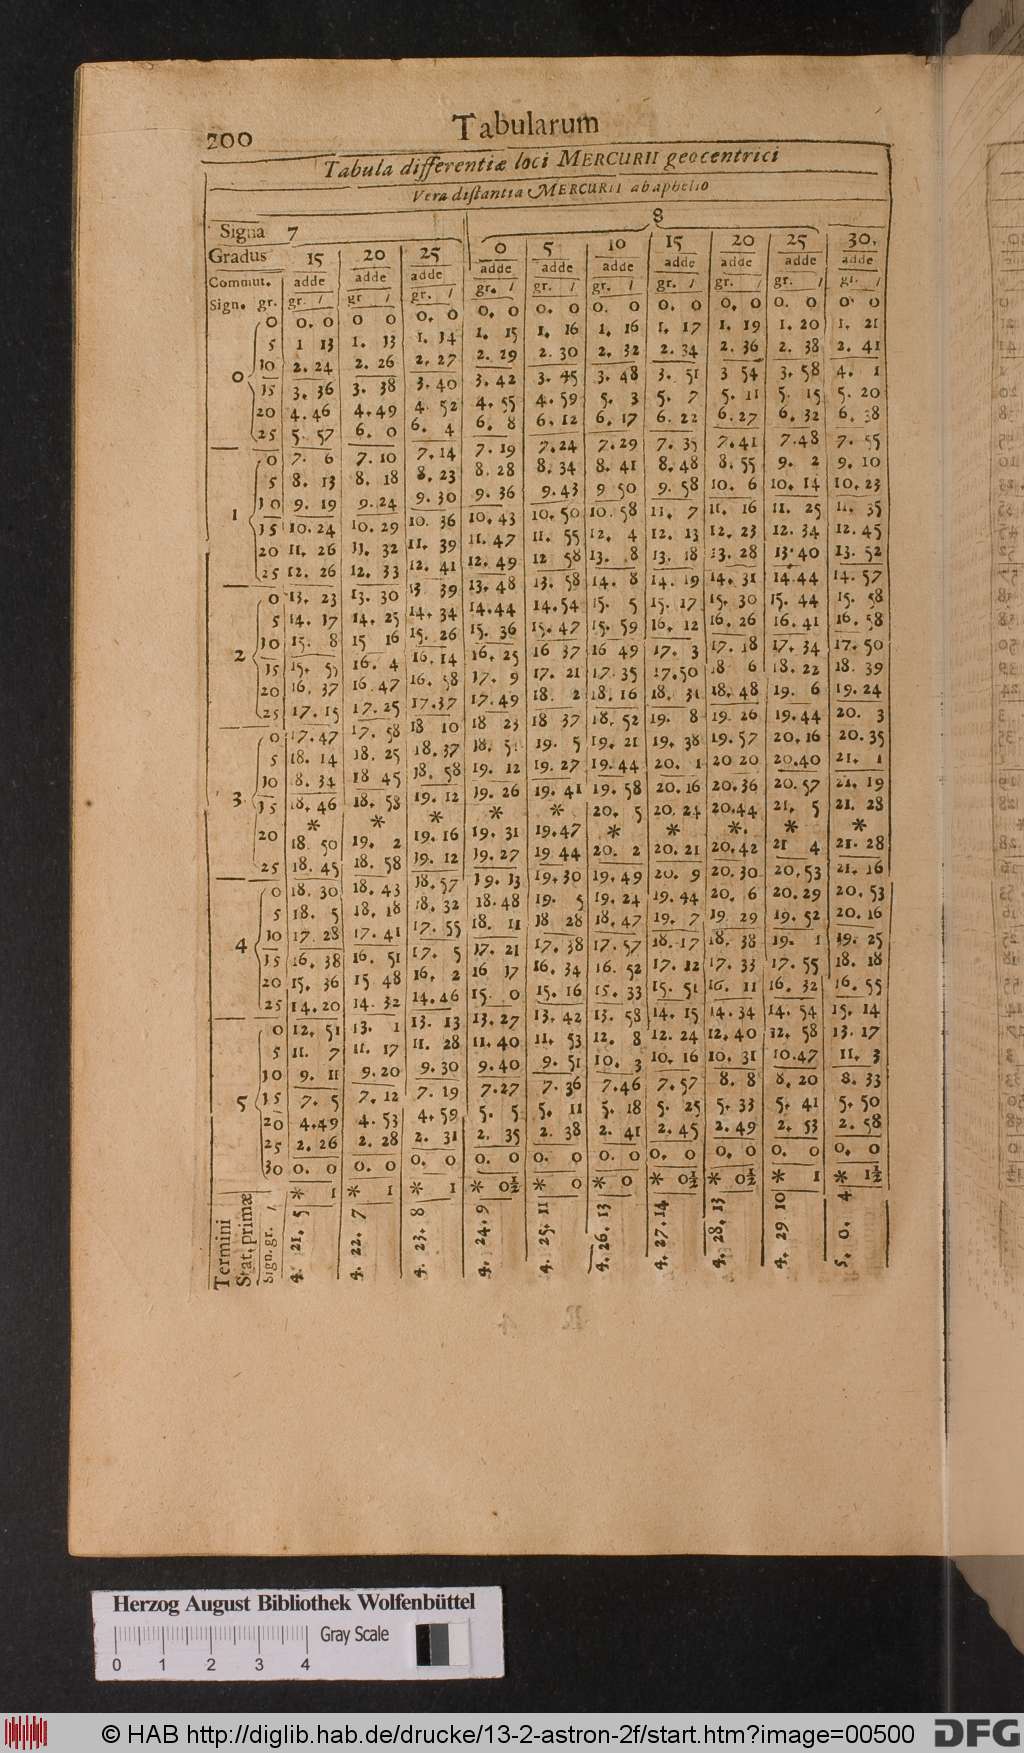 200 Tabularum
Tabula differentiæ loci MERCURII geocentrici
Vera distantia MERCURII ab aphelio
Signa 7 8
Gradus 15 20 25 0 5 10 15 20 25 30.
Commut. adde adde adde adde adde adde adde adde adde adde
Sign. gr. gr. / gr / gr. / gr. / gr. / gr. / gr. / gr. / gr. / gr. /
0 0 0. 0 0 0 0. 0 0. 0 0. 0 0. 0 0. 0 0. 0 0. 0 0. 0
5 1 13 1. 13 1. 14 1. 15 1. 16 1. 16 1. 17 1. 19 1. 20 1. 21
10 2. 24 2. 26 2. 27 2. 29 2. 30 2. 32 2. 34 2. 36 2. 38 2. 41
15 3. 36 3. 38 3. 40 3. 42 3. 45 3. 48 3. 51 3 54 3. 58 4. 1
20 4. 46 4. 49 4. 52 4. 55 4. 59 5. 3 5. 7 5. 11 5. 15 5. 20
25 5. 57 6. 0 6. 4 6. 8 6. 12 6. 17 6. 22 6. 27 6. 32 6. 38
1 0 7. 6 7. 10 7. 14 7. 19 7. 24 7. 29 7. 35 7. 41 7. 48 7. 55
5 8. 13 8. 18 8. 23 8. 28 8. 34 8. 41 8. 48 8. 55 9. 2 9. 10
10 9. 19 9. 24 9. 30 9. 36 9. 43 9 50 9. 58 10. 6 10. 14 10. 23
15 10. 24 10. 29 10. 36 10. 43 10. 50 10. 58 11. 7 11. 16 11. 25 11. 35
20 11. 26 11. 32 11. 39 11. 47 11. 55 12. 4 12. 13 12. 23 12. 34 12. 45
25 12. 26 12. 33 12. 41 12. 49 12 58 13. 8 13. 18 13. 28 13. 40 13. 52
2 0 13. 23 13. 30 13 39 13. 48 13. 58 14. 8 14. 19 14. 31 14. 44 14. 57
5 14. 17 14. 25 14. 34 14. 44 14. 54 15. 5 15. 17 15. 30 15. 44 15. 58
10 15. 8 15 16 15. 26 15. 36 15. 47 15. 59 16. 12 16. 26 16. 41 16. 58
15 15. 55 16. 4 16. 14 16. 25 16 37 16 49 17. 3 17. 18 17. 34 17. 50
20 16. 37 16. 47 16. 58 17. 9 17. 21 17. 35 17. 50 18 6 18. 22 18. 39
25 17. 15 17. 25 17. 37 17. 49 18. 2 18. 16 18. 31 18. 48 19. 6 19. 24
3 0 17. 47 17. 58 18 10 18 23 18 37 18. 52 19. 8 19. 26 19. 44 20. 3
5 18. 14 18. 25 18. 37 18. 51 19. 5 19. 21 19. 38 19. 57 20. 16 20. 35
10 8. 34 18 45 18. 58 19. 12 19. 27 19. 44 20. 1 20 20 20. 40 21. 1
15 18. 46 18. 58 19. 12 19. 26 19. 41 19. 58 20. 16 20. 36 20. 57 21. 19
* * * * * 20. 5 20. 24 20. 44 21. 5 21. 28
20 18. 50 19. 2 19. 16 19. 31 19. 47 * * * * *
25 18. 45 18. 58 19. 12 19. 27 19 44 20. 2 20. 21 20. 42 21 4 21. 28
4 0 18. 30 18. 43 18. 57 19. 13 19. 30 19. 49 20. 9 20. 30 20. 53 21. 16
5 18. 5 18. 18 18. 32 18. 48 19. 5 19. 24 19. 44 20. 6 20. 29 20. 53
10 17. 28 17. 41 17. 55 18. 11 18 28 18. 47 19. 7 19. 29 19. 52 20. 16
15 16. 38 16. 51 17. 5 17. 21 17. 38 17. 57 18. 17 18. 38 19. 1 19. 25
20 15. 36 15 48 16. 2 16 17 16. 34 16. 52 17. 12 17. 33 17. 55 18. 18
25 14. 20 14. 32 14. 46 15. 0 15. 16 15. 33 15. 51 16. 11 16. 32 16. 55
5 0 12. 51 13. 1 13. 13 13. 27 13. 42 13. 58 14. 15 14. 34 14. 54 15. 14
5 11. 7 11. 17 11. 28 11. 40 11. 53 12. 8 12. 24 12. 40 12. 58 13. 17
10 9. 11 9. 20 9. 30 9. 40 9. 51 10. 3 10. 16 10. 31 10. 47 11. 3
15 7. 5 7. 12 7. 19 7. 27 7. 36 7. 46 7. 57 8. 8 8. 20 8. 33
20 4. 49 4. 53 4. 59 5. 5 5. 11 5. 18 5. 25 5. 33 5. 41 5. 50
25 2. 26 2. 28 2. 31 2. 35 2. 38 2. 41 2. 45 2. 49 2. 53 2. 58
30 0. 0 0. 0 0. 0 0. 0 0. 0 0. 0 0. 0 0. 0 0. 0 0. 0
* 1 * 1 * 1 * 0½ * 0 * 0 * 0½ * 0½ * 1 * 1½
Termini
Stat. primæ
Sign. gr. /
4. 21. 5
4. 22. 7
4. 23. 8
4. 24. 9
4. 25. 11
4. 26. 13
4. 27. 14
4. 28. 13
4. 29 10
5. 0. 4
Herzog August Bibliothek Wolfenbüttel
Gray Scale
0 1 2 3 4
© HAB http://diglib.hab.de/drucke/13-2-astron-2f/start.htm?image=00500 DFG